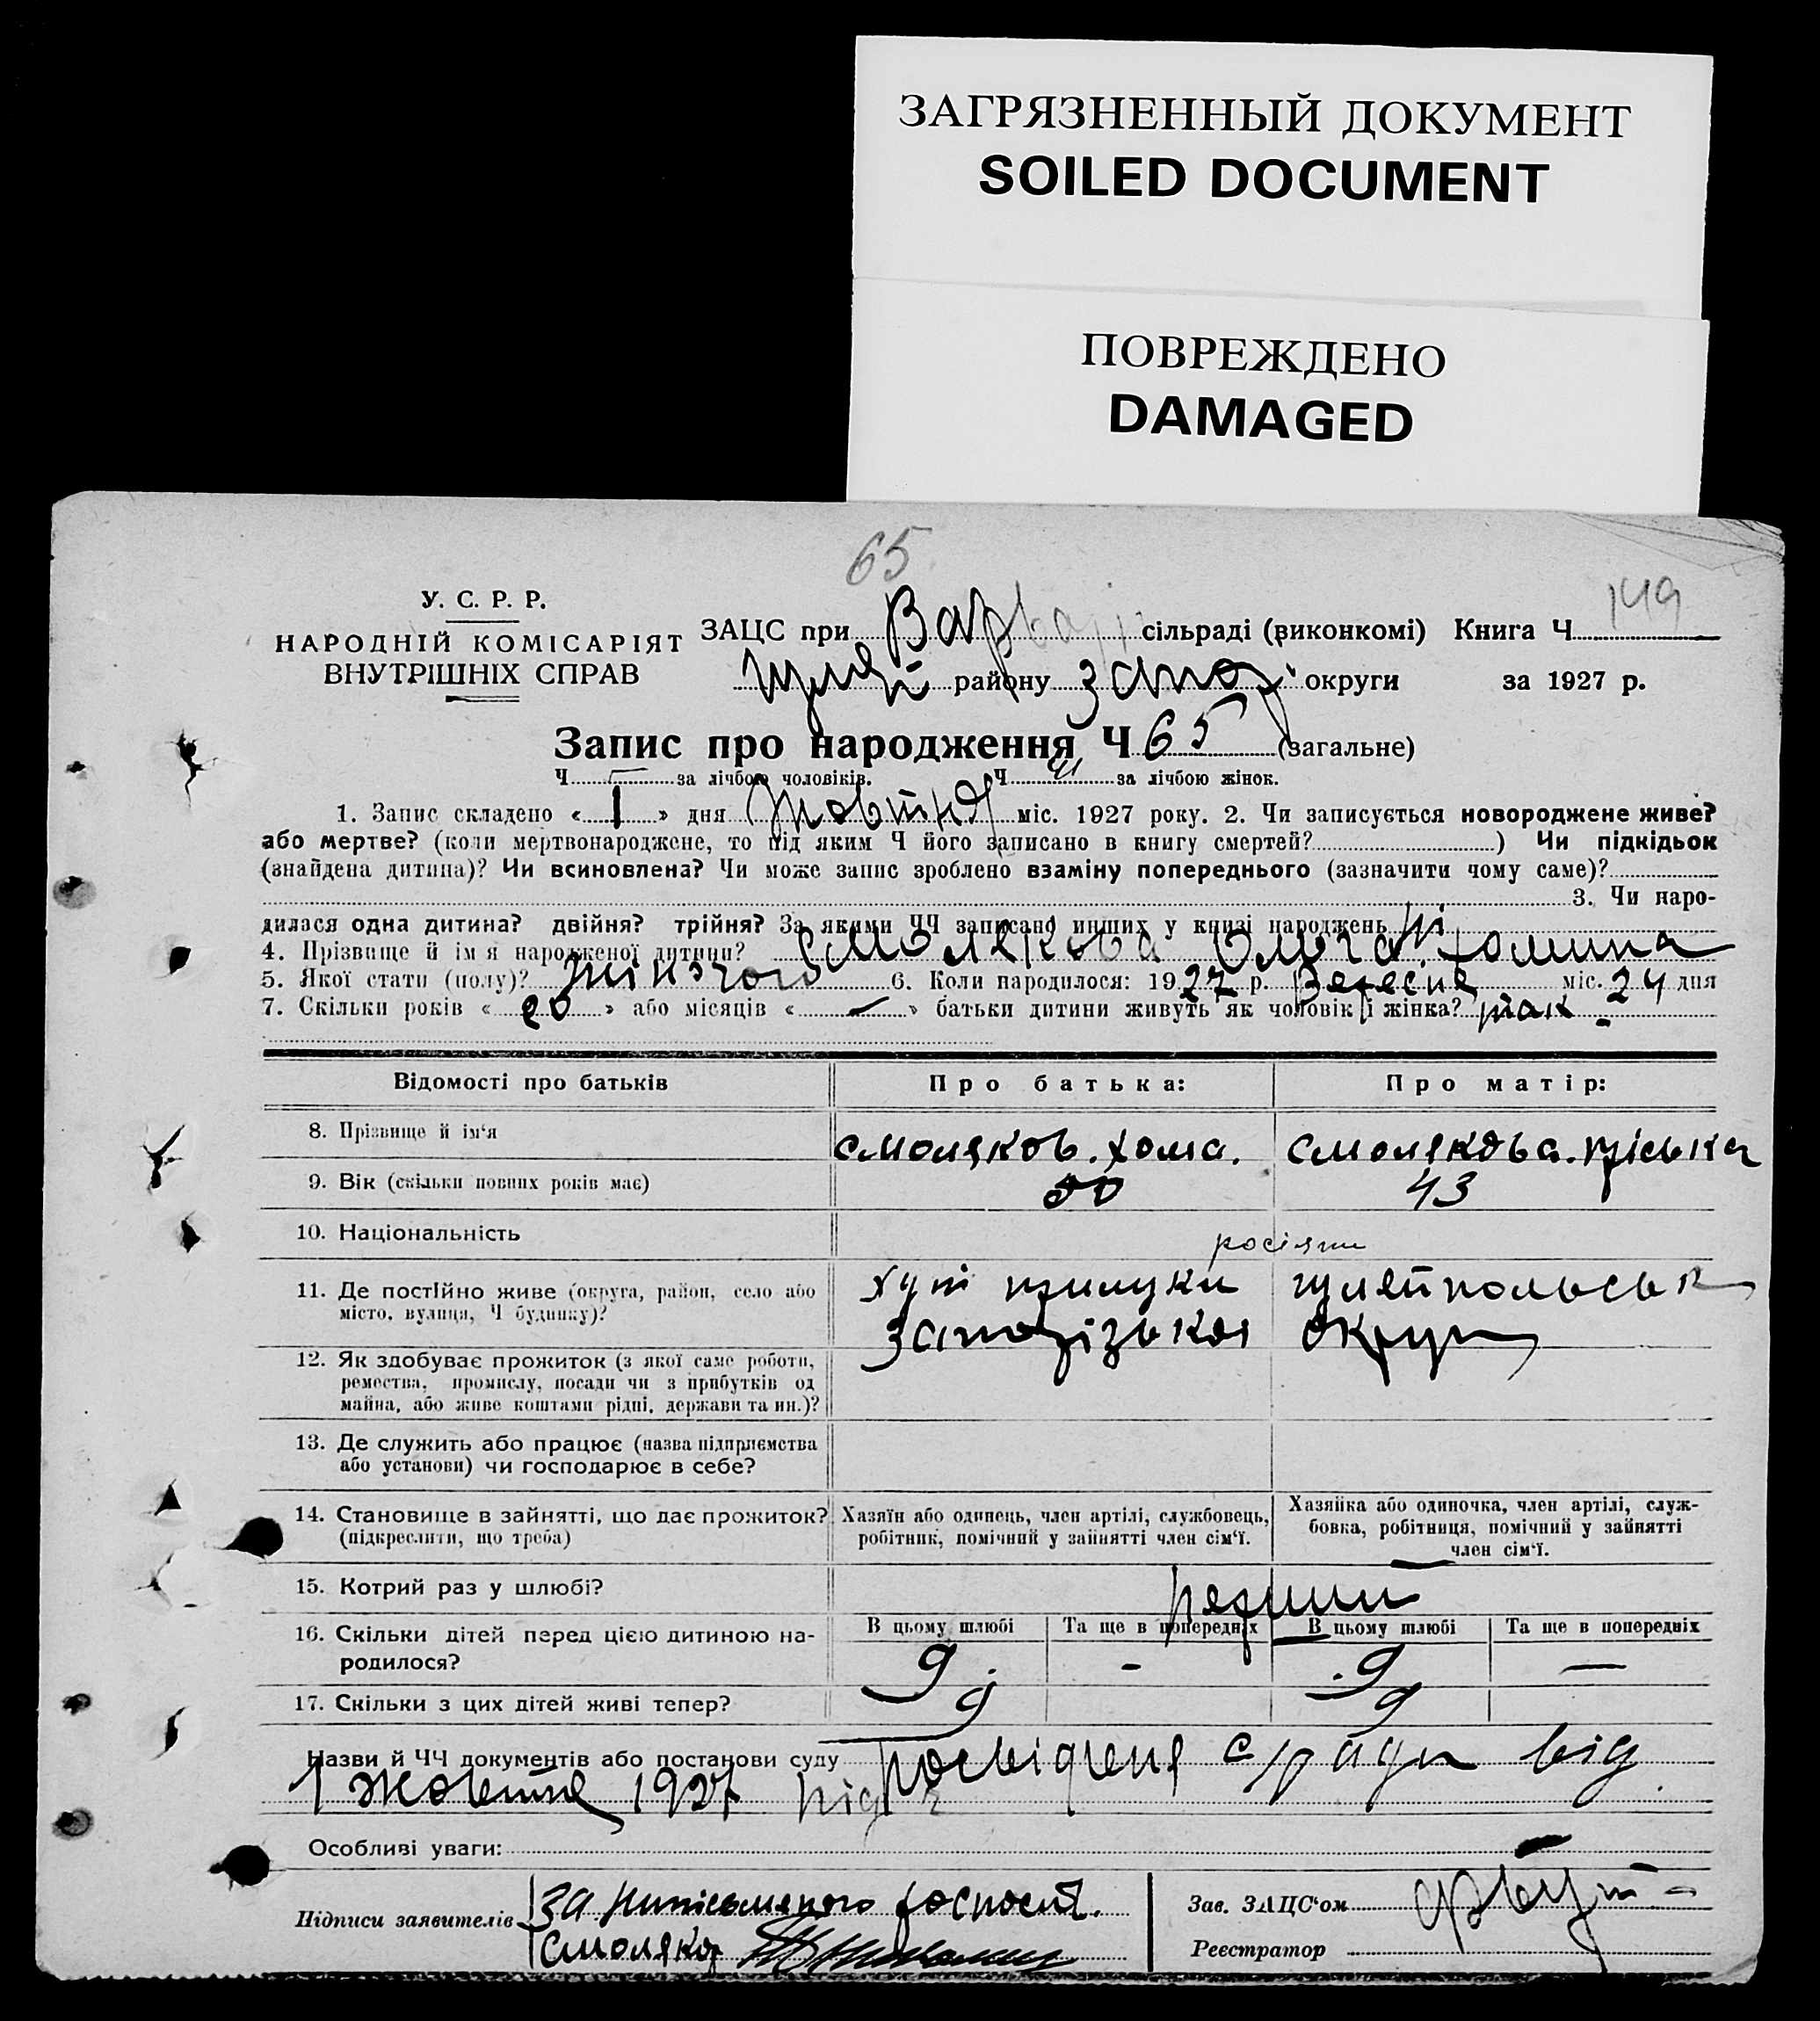 ЗАГРЯЗНЕННЫЙ ДОКУМЕНТ
SOILED DOCUMENT
ПОВРЕЖДЕНО
DAMAGED
65
149
У. С. Р. Р.
НАРОДНІЙ КОМІСАРІЯТ
ВНУТРІШНІХ СПРАВ
ЗАЦС при сільраді (виконкомі) Книга Ч
району округи за 1927 р.
Запис про народження Ч 65 (загальне)
Ч за лічбою чоловіків. Ч за лічбою жінок.
1. Запис складено « 1 » дня міс. 1927 року. 2. Чи записується новороджене живе?
або мертве? (коли мертвонароджене, то під яким Ч його записано в книгу смертей? ) Чи підкідьок
(знайдена дитина)? Чи всиновлена? Чи може запис зроблено взаміну попереднього (зазначити чому саме)?
3. Чи наро-
дилася одна дитина? двійня? трійня? За якими ЧЧ записано инших у книзі народжень ні
4. Прізвище й ім я народженої дитини? Смолякова Ольга. Хомина
5. Якої стати (полу)? жіночого 6. Коли народилося: 1927 р. Вересня міс. 24 дня
7. Скільки років « 20 » або місяців « — » батьки дитини живуть як чоловік і жінка? так
Відомості про батьків Про батька: Про матір:
8. Прізвище й ім'я смоляков. хома. смолякова.
9. Вік (скільки повних років має) 50 43
10. Національність росіяни
11. Де постійно живе (округа, район, село або хут
місто, вулиця, Ч будинку)? округи
12. Як здобуває прожиток (з якої саме роботи,
ремества, промислу, посади чи з прибутків од
майна, або живе коштами рідні, держави та ин.)?
13. Де служить або працює (назва підприємства
або установи) чи господарює в себе?
14. Становище в зайнятті, що дає прожиток? Хазяїн або одинець, член артілі, службовець, Хазяйка або одиночка, член артілі, служ-
(підкреслити, що треба) робітник, помічний у зайнятті член сім'ї. бовка, робітниця, помічний у зайнятті
член сім'ї.
15. Котрий раз у шлюбі?
16. Скільки дітей перед цією дитиною на- В цьому шлюбі Та ще в попередніх В цьому шлюбі Та ще в попередніх
родилося? 9 - 9 —
17. Скільки з цих дітей живі тепер? 9 9
Назви й ЧЧ документів або постанови суду від
1 Жовтня 1927
Особливі уваги:
Підписи заявителів За
Зав. ЗАЦС'ом
Реєстратор